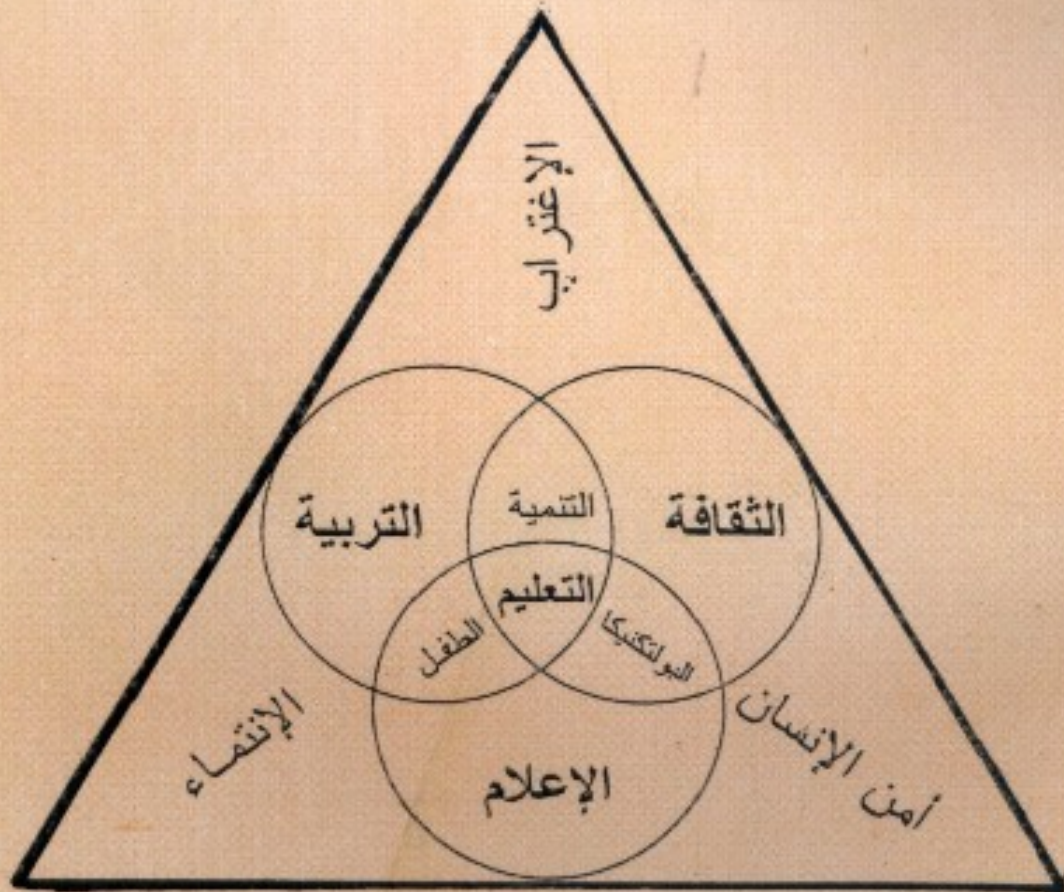 الإغتراب
التربية
التنمية
الثقافة
التعليم
الطفل
البولتكنيكا
الإنتماء
أمن الإنسان
الإعلام